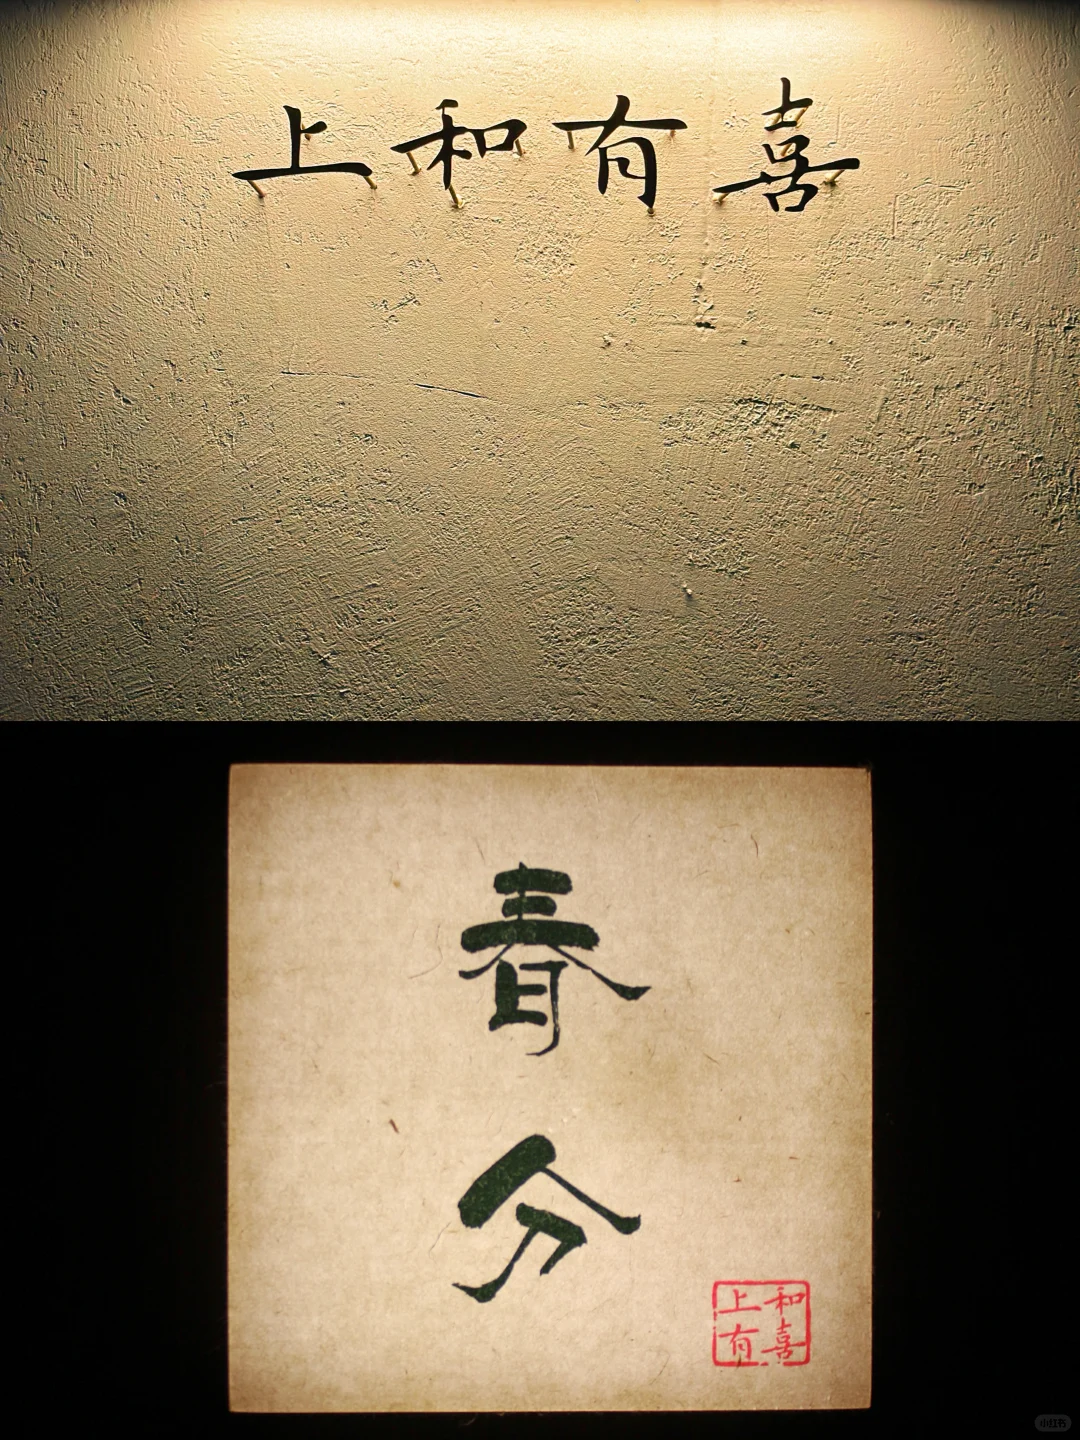 上和有喜
春
分
上和
有喜
小红书